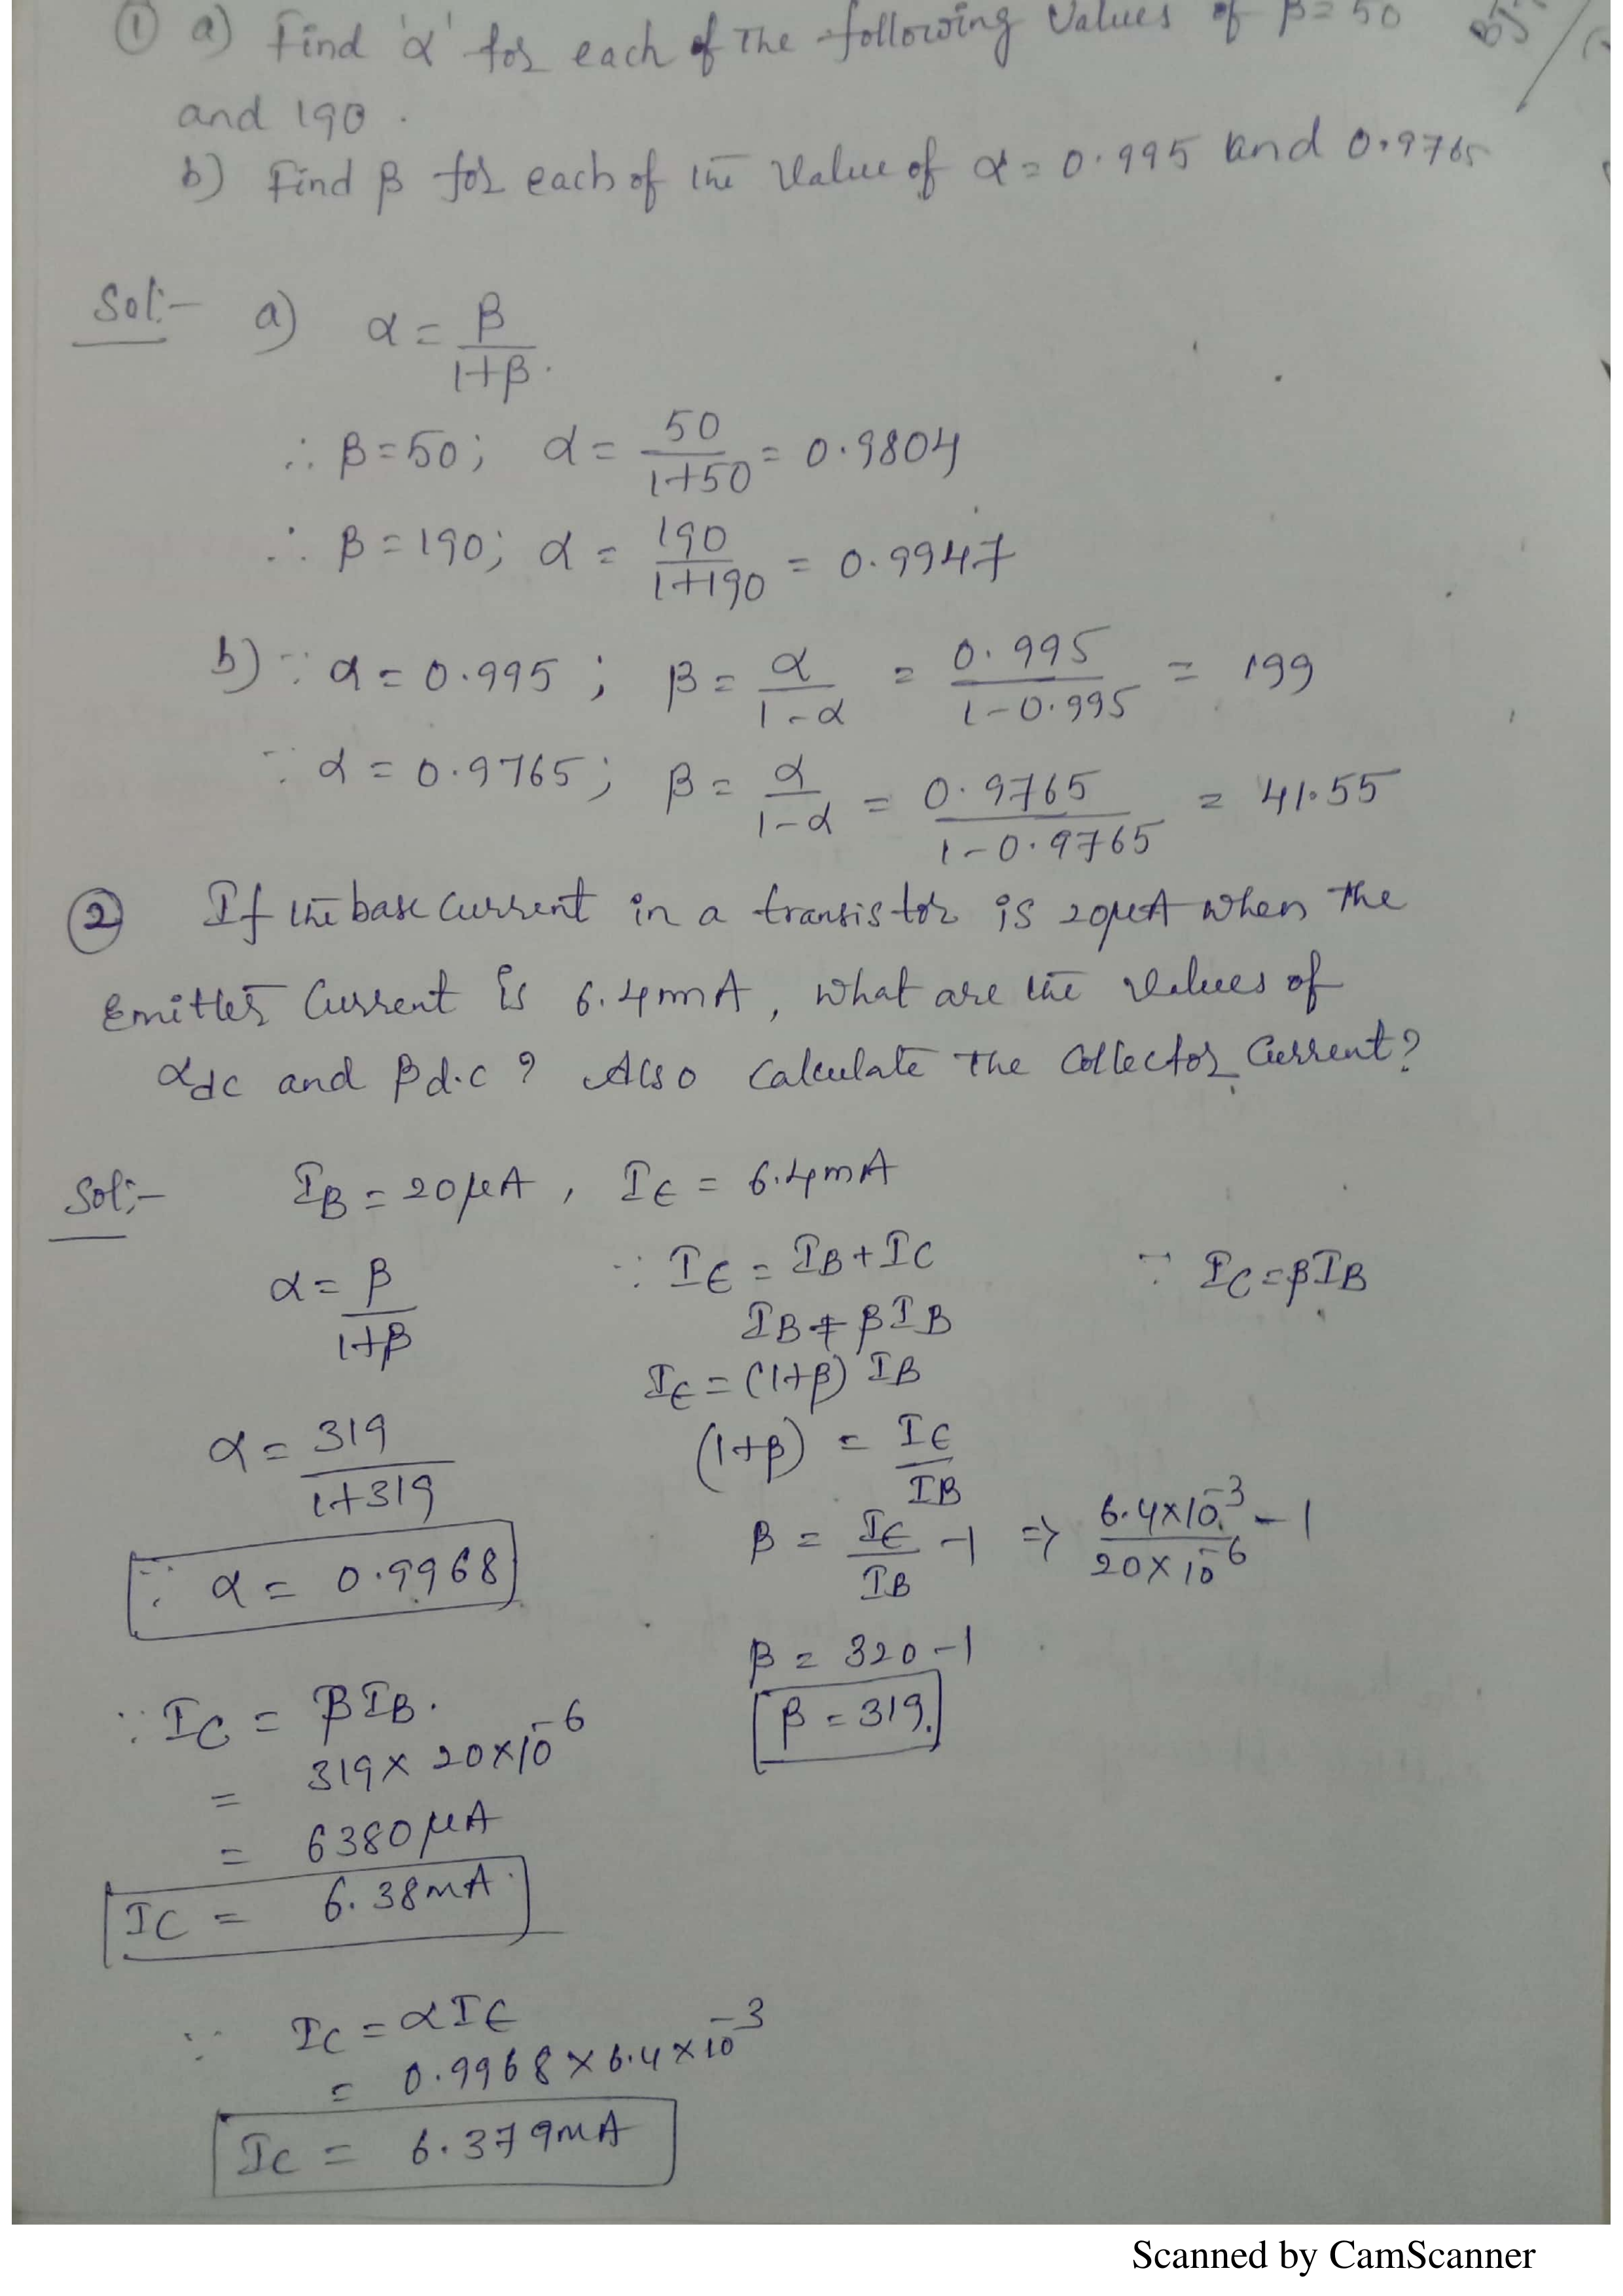 ① a) Find 'α' for each of The following Values of β=50
and 190.
b) Find β for each of the Value of α=0.995 and 0.9765
Sol:- a) α = β/1+β.
∴ β=50; α = 50/1+50 = 0.9804
∴ β=190; α = 190/1+190 = 0.9947
b) ∵ α = 0.995 ; β = α/1-α = 0.995/1-0.995 = 199
∵ α = 0.9765; β = α/1-α = 0.9765/1-0.9765 = 41.55
② If the base current in a transistor is 20μA when The
Emitter Current is 6.4mA, what are the values of
αdc and βd.c ? Also Calculate The Collector Current?
Sol:- IB = 20μA , IE = 6.4mA
α = β/1+β ∵ IE = IB + IC ∵ IC = βIB
IB + βIB
IE = (1+β) IB
α = 319/1+319 (1+β) = IE/IB
∵ α = 0.9968 β = IE/IB -1 ⇒ 6.4×10^-3/20×10^-6 -1
β = 320-1
∵ IC = βIB. β = 319.
= 319 × 20×10^-6
= 6380μA
IC = 6.38mA.
∵ IC = αIE
= 0.9968 × 6.4 × 10^-3
IC = 6.379mA
Scanned by CamScanner